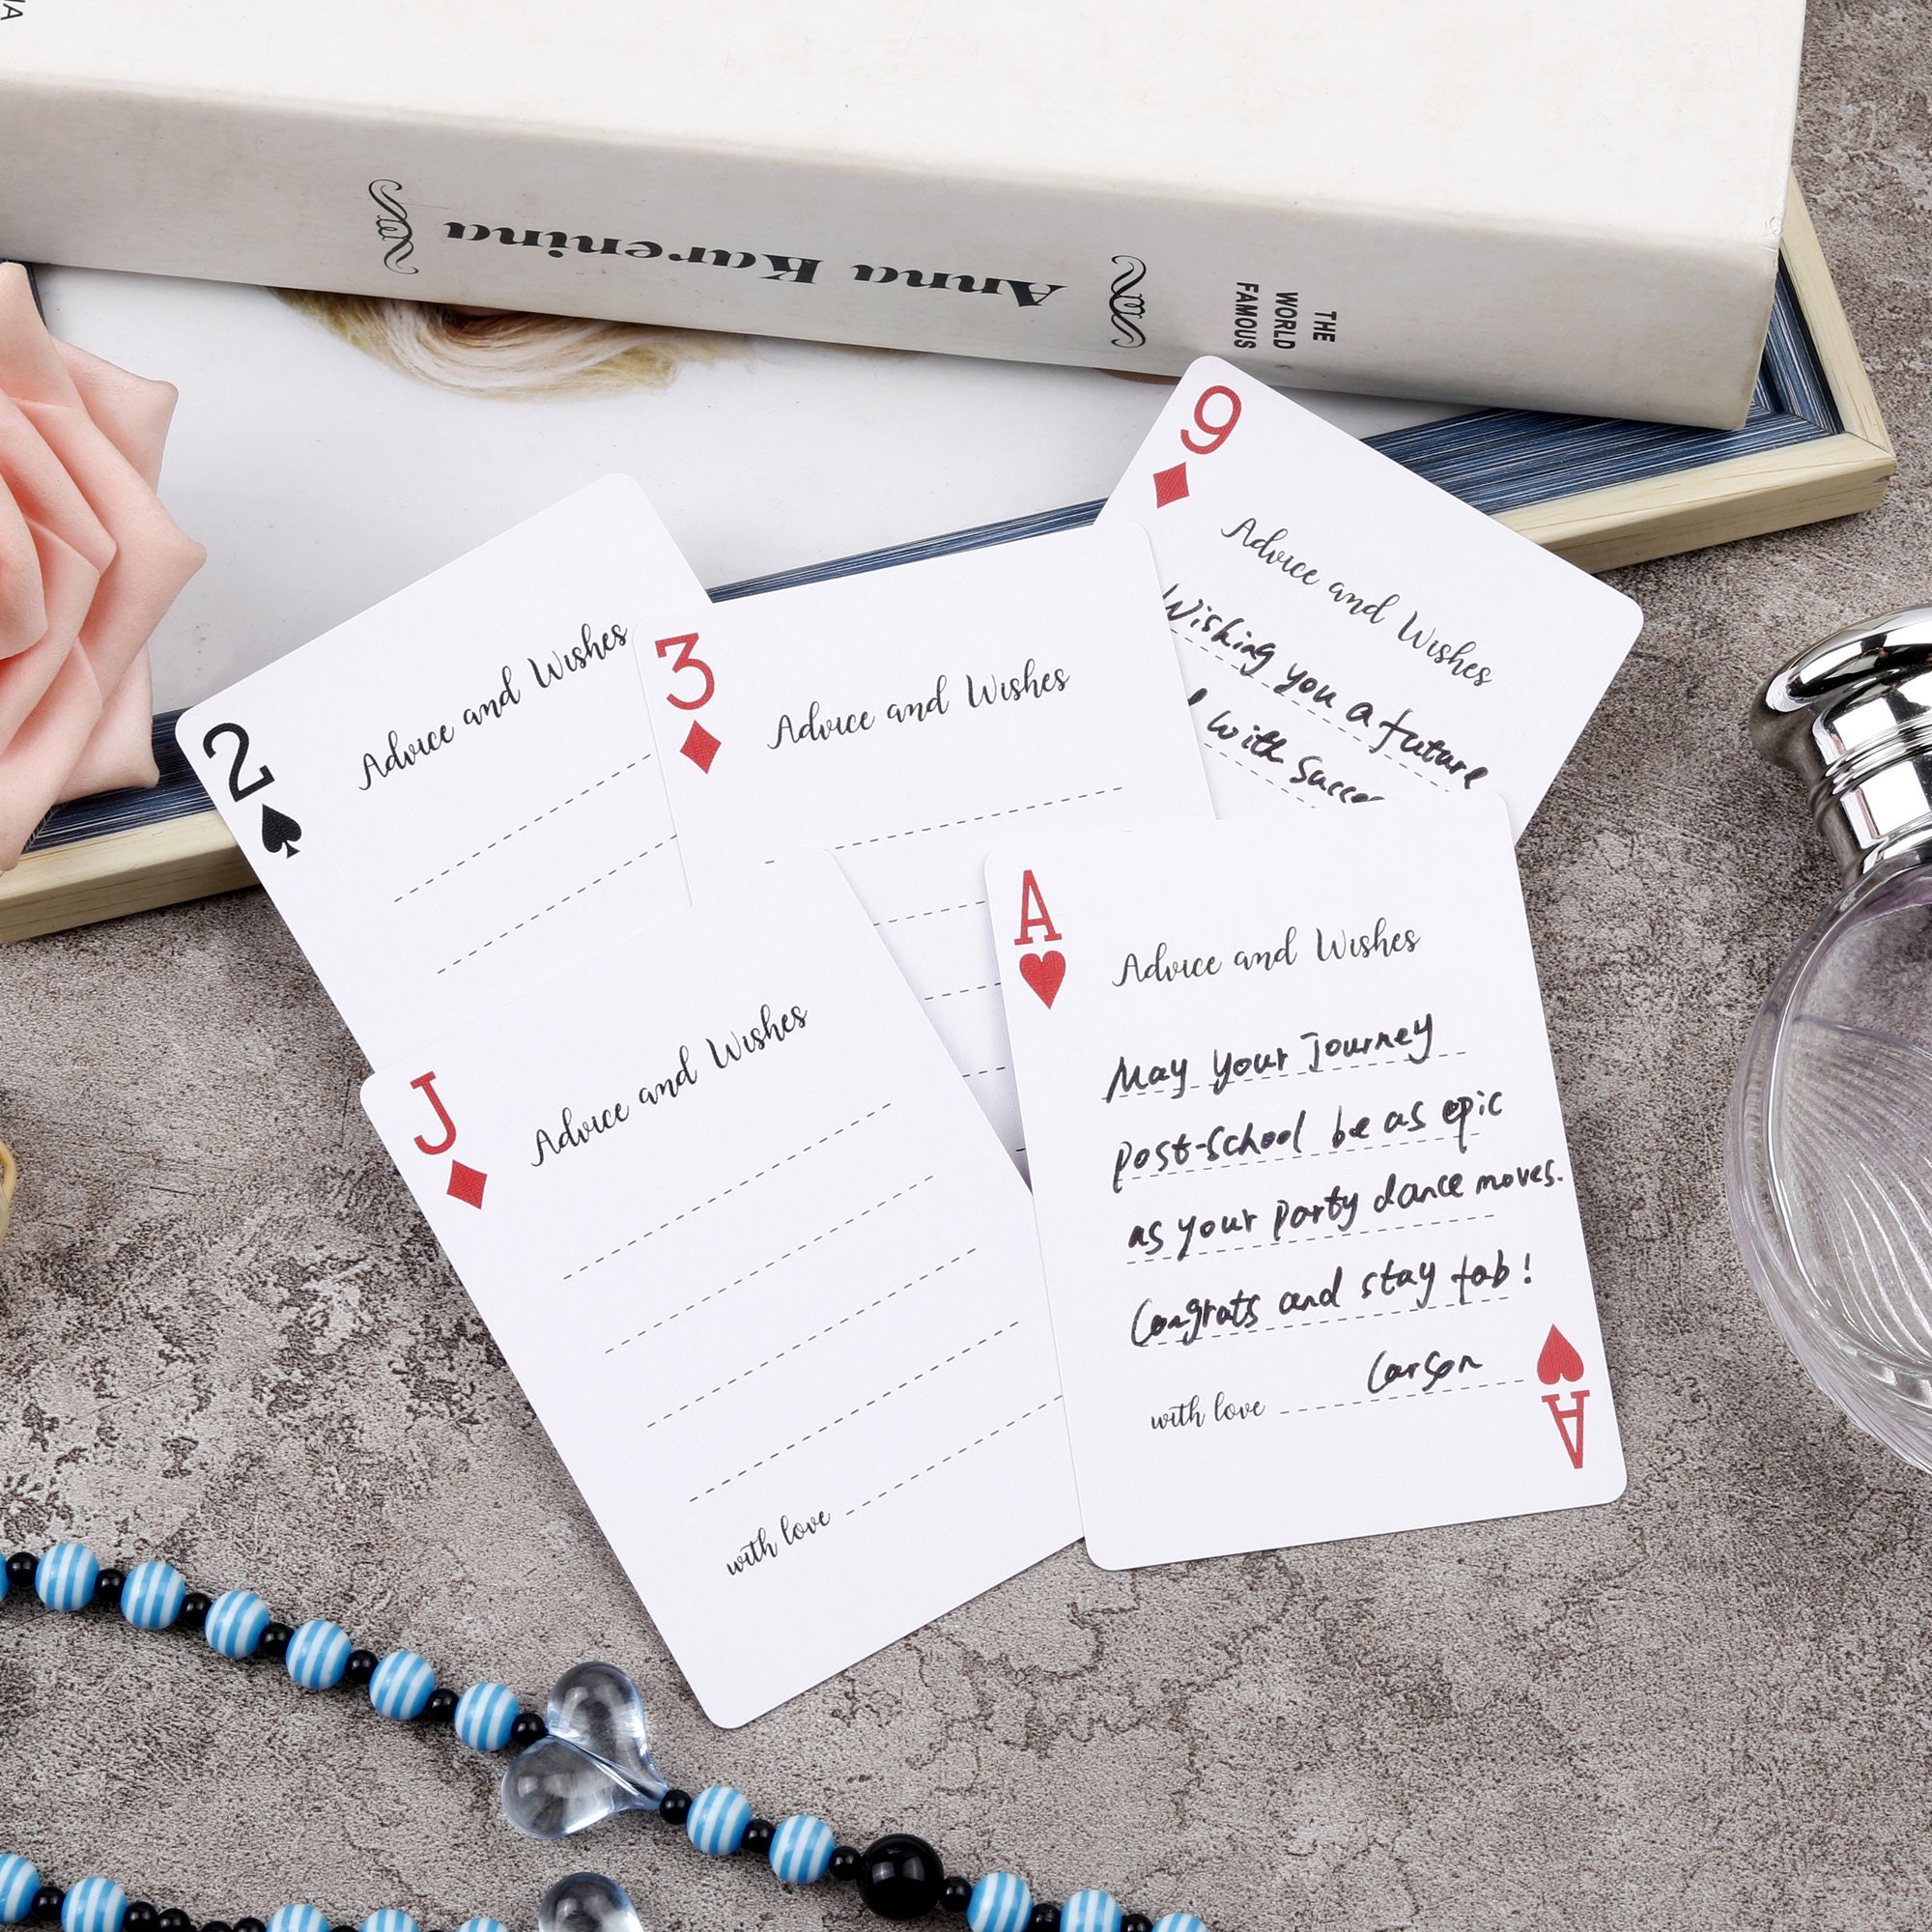 Anna Karenina
THE
WORLD
FAMOUS
9
Advice and Wishes
Wishing you a future
with
2
Advice and Wishes
3
Advice and Wishes
J
Advice and Wishes
with love
A
Advice and Wishes
May your Journey
post-school be as epic
as your party dance moves.
Congrats and stay fab!
with love Carson
A